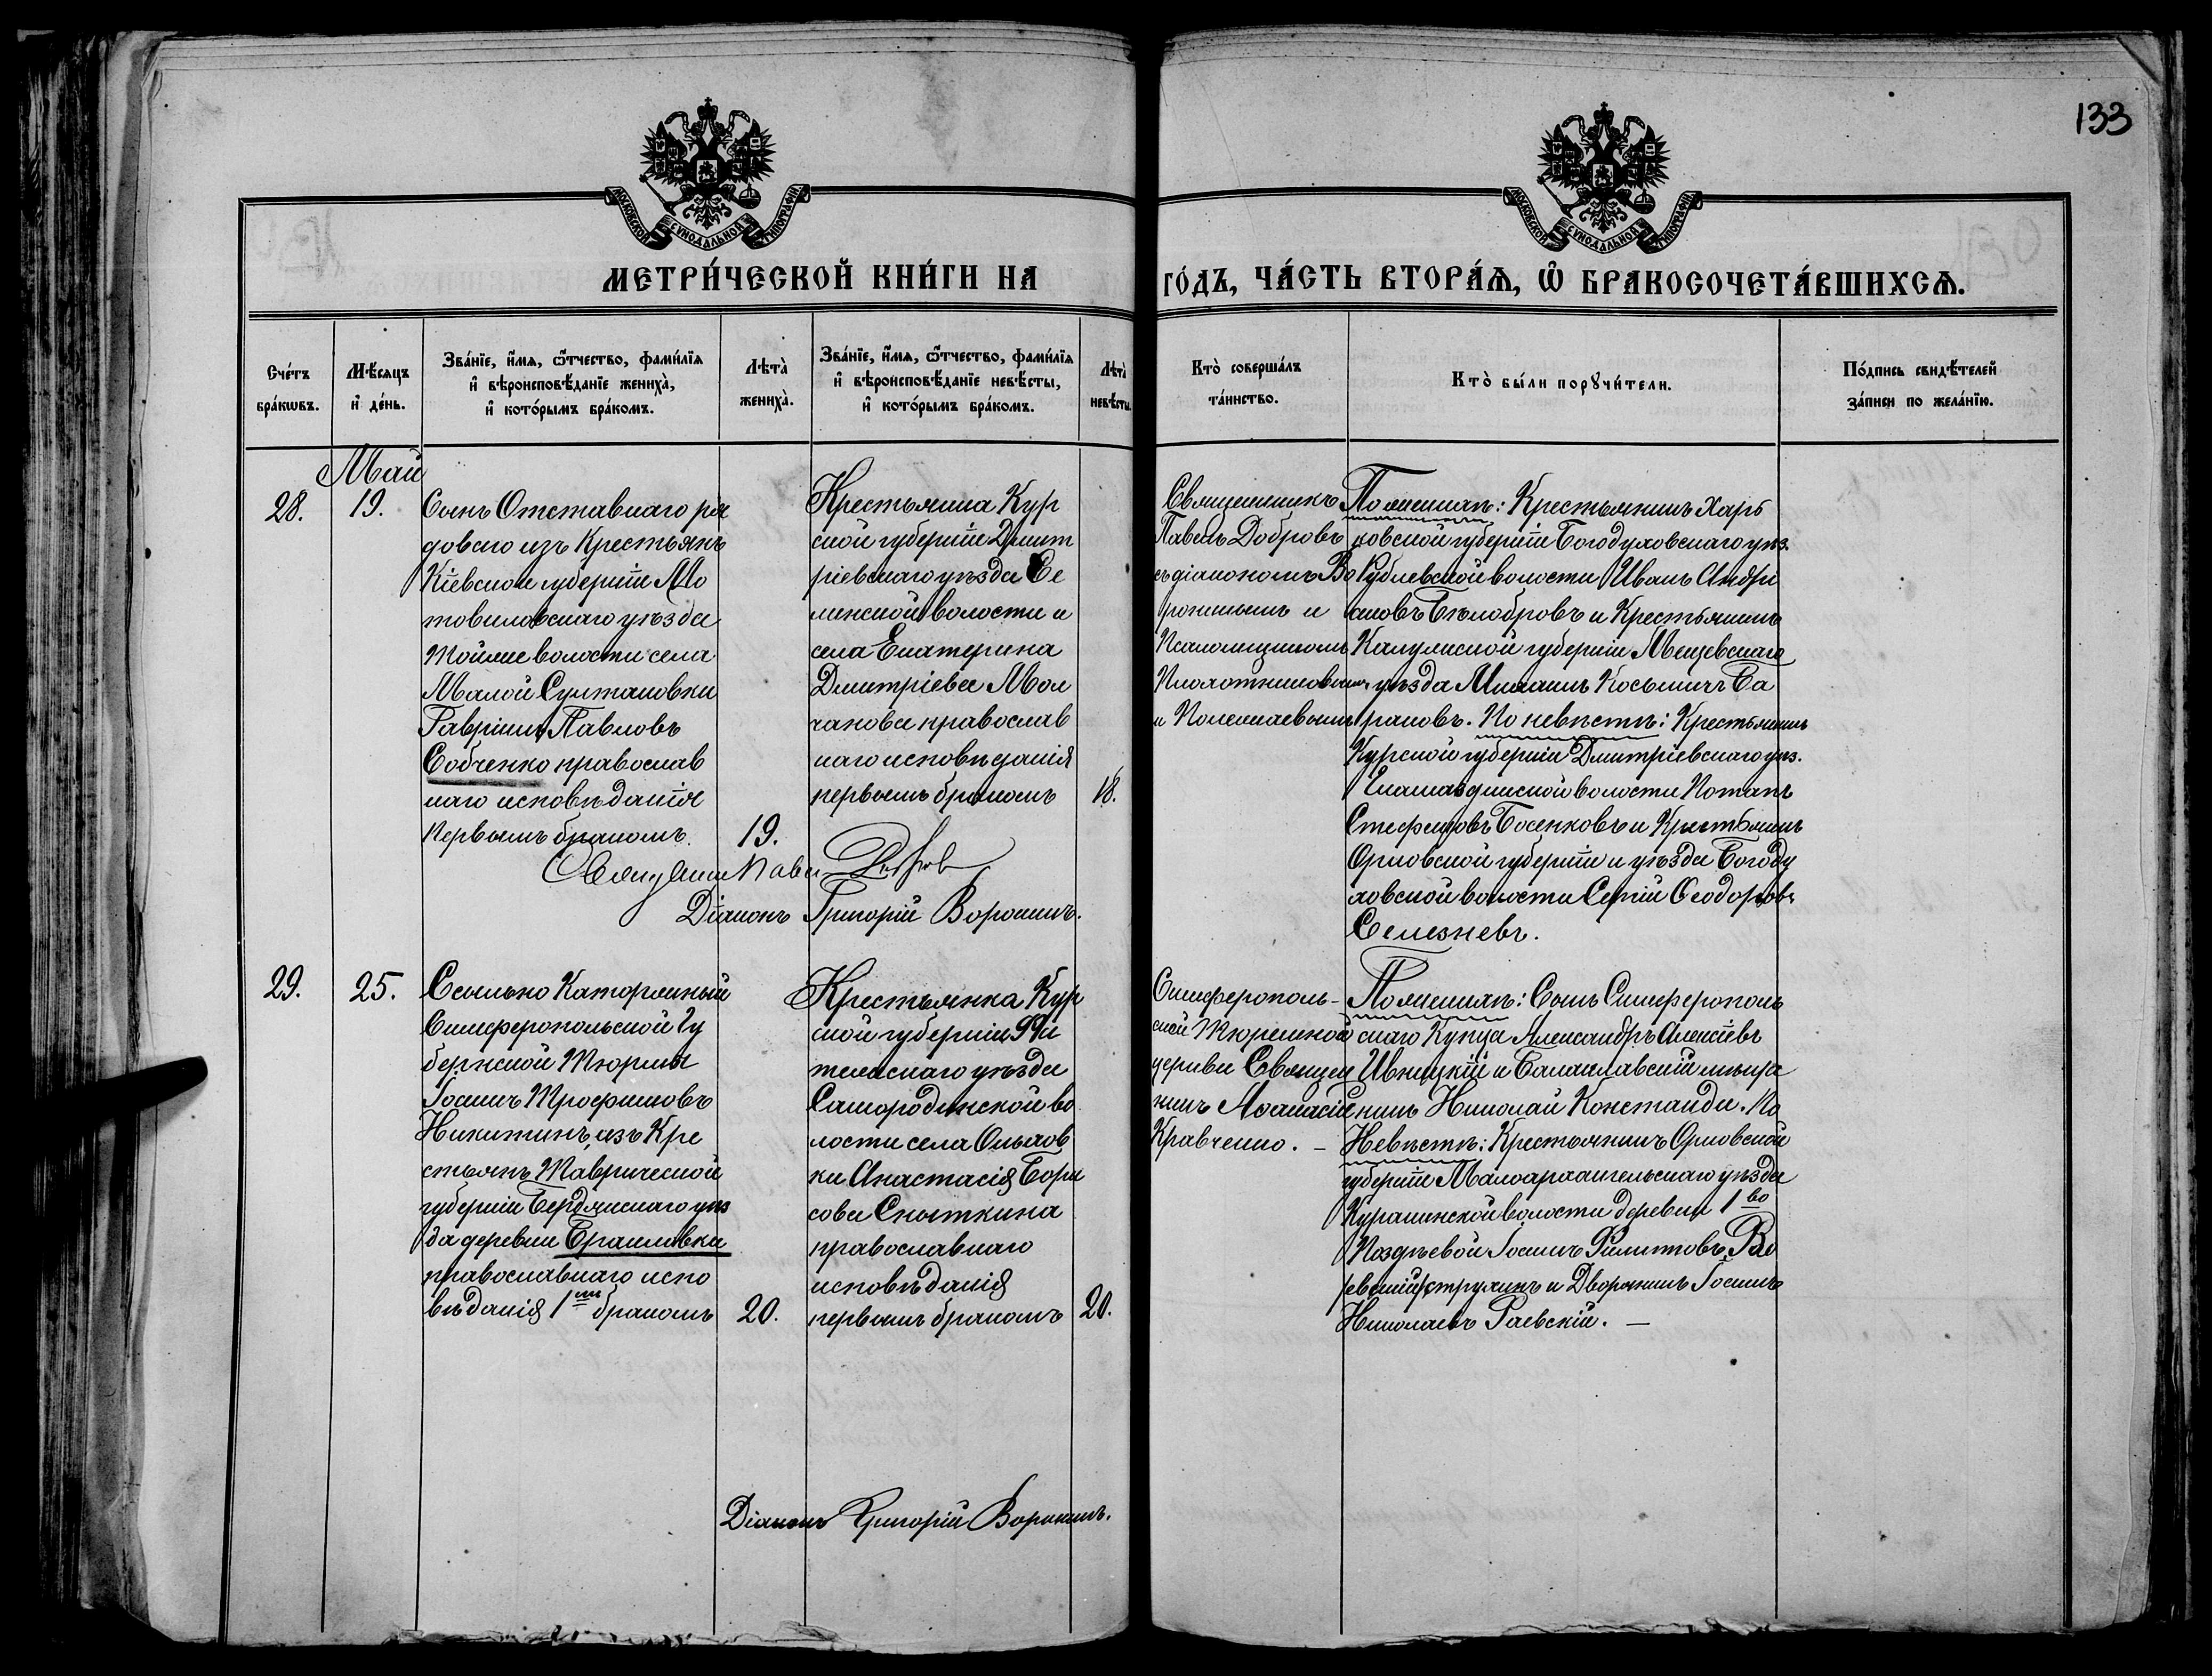 133
МОСКОВСКОЙ СѴНОДАЛЬНОЙ ТИПОГРАФІИ
МОСКОВСКОЙ СѴНОДАЛЬНОЙ ТИПОГРАФІИ
МЕТРИ́ЧЕСКОЙ КНИ́ГИ НА
ГО́ДЪ, ЧА́СТЬ ВТОРА́Ѧ, Ѽ БРАКОСОЧЕТА́ВШИХСѦ.
Сче́тъ
бра́кωвъ.
Мѣ́сѧцъ
и҆ де́нь.
Зва́нїе, и҆́мѧ, ѻ҆́тчество, фами́лїѧ
и҆ вѣроисповѣ́данїе жениха̀,
и҆ кото́рымъ бра́комъ.
Лѣта̀
жениха̀.
Зва́нїе, и҆́мѧ, ѻ҆́тчество, фами́лїѧ
и҆ вѣроисповѣ́данїе невѣ́сты,
и҆ кото́рымъ бра́комъ.
Лѣта̀
невѣ́сты.
Кто̀ соверша́лъ
та́инство.
Кто̀ бы́ли порꙋчи́тели.
По́дпись свидѣ́телей
за́писи по жела́нїю.
Май
28.
19.
Сынъ Отставнаго ря
доваго изъ Крестьянъ
Кіевской губерніи Мо
товиловскаго уѣзда
волости села
Малой Султановки
Гавріилъ Павловъ
Собченко православ
наго исповѣданія
первымъ бракомъ.
19.
Крестьянка Кур
ской губерніи Дмит
ріевскаго уѣзда Се
линской волости и
села Екатерина
Дмитріева Мол
чанова православ
наго исповѣданія
первымъ бракомъ
18.
Священникъ
Павелъ Добровъ
съ діакономъ Во
ронинымъ и
Псаломщикомъ
Плохотниковымъ
и Полежаевымъ
По женихѣ: Крестьянинъ Харь
ковской губерніи Богодуховскаго уѣз.
Рублевской волости Иванъ Андрі
ановъ Бѣлобровъ и Крестьянинъ
Калужской губерніи Мещевскаго
уѣзда Михаилъ Косьмичъ Ба
рановъ. По невѣстѣ: Крестьянинъ
Курской губерніи Дмитріевскаго уѣз.
волости Потапъ
Стефановъ Босенковъ и Крестьянинъ
Орловской губерніи и уѣзда Богоду
ховской волости Сергій Ѳеодоровъ
Селезневъ.
Священникъ Павелъ Добровъ
Діаконъ Григорій Воронинъ.
29.
25.
Ссыльно Каторжный
Симферопольской Гу
бернской Тюрмы
Іоаннъ Трофимовъ
Никитинъ, изъ Кре
стьянъ Таврической
губерніи Бердянскаго уѣз
да деревни Браиловки
православнаго испо
вѣданія 1мъ бракомъ
20.
Крестьянка Кур
ской губерніи Фа
тежскаго уѣзда
Самородинской во
лости села Ольхов
ки Анастасія Бори
сова Сныткина
православнаго
исповѣданія
первымъ бракомъ
20.
Симферополь-
ской Тюремной
церкви Священ
никъ Аѳанасій
Кравченко. –
По женихѣ: Сынъ Симферополь
скаго Купца Александръ Алексіевъ
Ивницкій и Балаклавскій мѣща
нинъ Николай Констанди. По
Невѣстѣ: Крестьянинъ Орловской
губерніи Малоархангельскаго уѣзда
Куракинской волости деревни 1во
Поздѣевой Іоаннъ Филиповъ
и Дворянинъ Іоаннъ
Николаевъ Раевскій. –
Діаконъ Григорій Воронинъ.